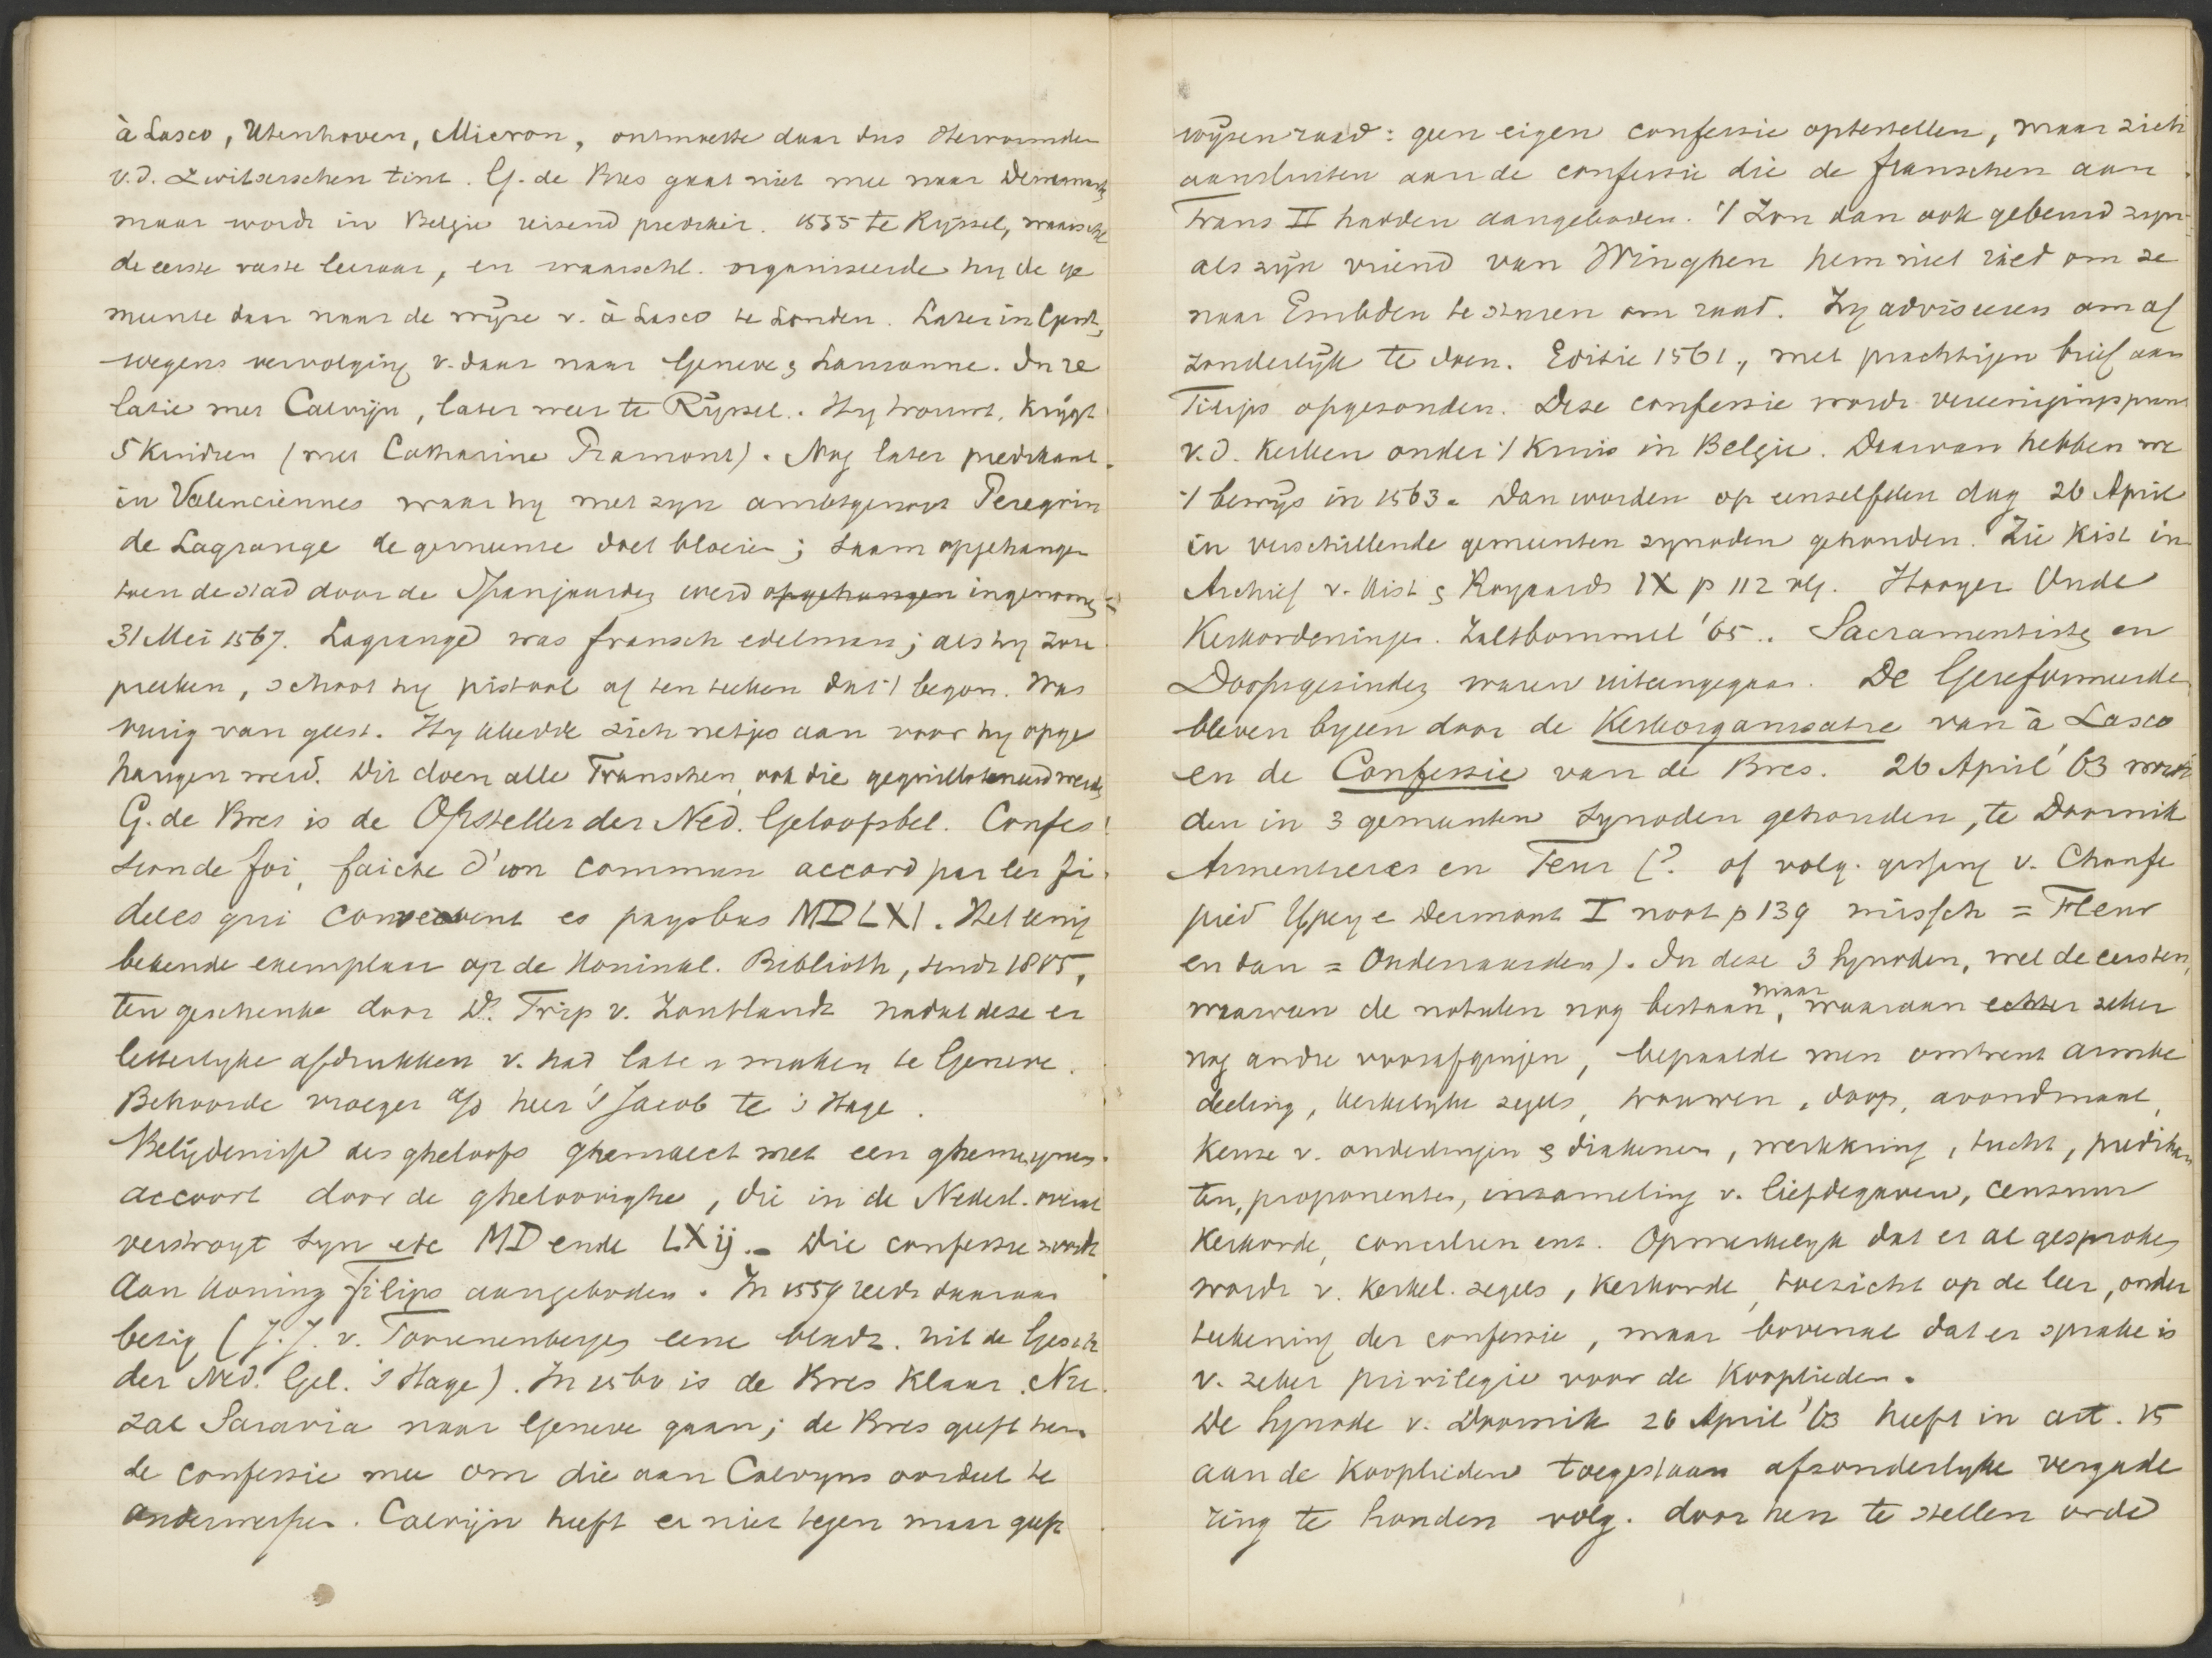 à Lasco, Utenhoven, Micron, ontmoette daar dus Hervormden
v.d. Zwitserschen tint. G. de Bres gaat niet mee naar Denemark,
maar wordt in Belgie reizend prediker. 1555 te Ryssel, waarschl
de eerste vaste leeraar, en waarschl. organiseerde hy de ge
meente daar naar de wijze v. à Lasco te Londen. Later in Gent,
wegens vervolging v. daar naar Geneve & Lausanne. In re
latie met Calvijn, later weer te Rijssel. Hy trouwt, krijgt
5 kindren (met Catharine Ramont). Nog later predikant
in Valenciennes waar hy met zyn ambtgenoot Peregrin
de Lagrange de gemeente doet bloeien; saam opgehangen
toen de stad door de Spanjaarden werd opgehangen ingenomen
31 Mei 1567. Lagrange was fransch edelman; als hy zou
preeken, schoot hy pistool af ten teeken dat 't begon. Was
vurig van geest. Hy kleedde zich netjes aan voor hy opge
hangen werd. Dit doen alle Franschen, ook die geguillotineerd werden
G. de Bres is de Opsteller der Ned. Geloofsbel. Confes
sion de foi, faicte d'un commun accord par les fi
deles qui conversent es pays bas MDLXI. Het eenig
bekende exemplaar op de Koninkl. Biblioth, sinds 1805,
ten geschenke door D. Trip v. Zoutlandt nadat deze er
letterlyke afdrukken v. had laten maken te Geneve.
Behoorde vroeger a/d heer 's Jacob te 's Hage.
Belijdenisse des gheloofs ghemaect met een ghemeynen
accoort door de gheloovighe, die in de Nederl. overal
verstroyt syn etc MD ende LXij. Die confessie wordt
aan Koning Filips aangeboden. In 1559 reeds daaraan
bezig (J.J. v. Toorenenbergen eene bladz. uit de Gesch
der Ned. Gel. 's Hage). In 1560 is de Bres klaar. Nu
zal Saravia naar Geneve gaan; de Bres geeft hem
de confessie mee om die aan Calvyns oordeel te
onderwerpen. Calvijn heeft er niets tegen maar geeft
wijzen raad: geen eigen confessie optestellen, maar zich
aansluiten aan de confessie die de franschen aan
Frans II hadden aangeboden. 't Zou dan ook gebeurd zyn
als zijn vriend van Winghen hem niet ried om ze
naar Embden te sturen om raad. Zy adviseeren om af
zonderlijk te doen. Editie 1561, met prachtigen brief aan
Filips opgezonden. Deze confessie wordt vereenigingspunt
v.d. Kerken onder 't kruis in Belgie. Daarvan hebben we
't bewijs in 1563. Dan worden op eenzelfden dag 26 April
in verschillende gemeenten synoden gehouden. Zie Kist in
Archief v. Kist & Royaards IX p 112 vlg. Hooyer Oude
Kerkordeningen. Zaltbommel '65. Sacramentisten en
Doopsgezinden waren uiteengegaan. De Gereformeerden
bleven byeen door de Kerkorganisatie van à Lasco
en de Confessie van de Bres. 26 April '63 wor
den in 3 gemeenten Synoden gehouden, te Doornik
Armentieres en Teur (? of volg. gissing v. Chaufe
pied Ypey e Dermout I noot p 139 missch = Fleur
en dan = Oudenaarden). In deze 3 Synoden, wel de eersten,
waarvan de notulen nog bestaan, maar waaraan echter zeker
nog andre voorafgingen, bepaalde men omtrent armbe
deeling, kerkelyke zegels, trouwen, doop, avondmaal,
Keuze v. ouderlingen & diakenen, werkkring, tucht, predikan
ten, proponenten, inzameling v. liefdegaven, censuur
Kerkorde, concilien enz. Opmerkelyk dat er al gesproken
wordt v. kerkel. zegels, Kerkorde, toezicht op de leer, onder
teekening der confessie, maar bovenal dat er sprake is
v. zeker privilegie voor de Kooplieden.
De Synode v. Doornik 26 April '63 heeft in art. 15
aan de Kooplieden toegestaan afzonderlyke vergade
ring te houden volg. door hen te stellen orde